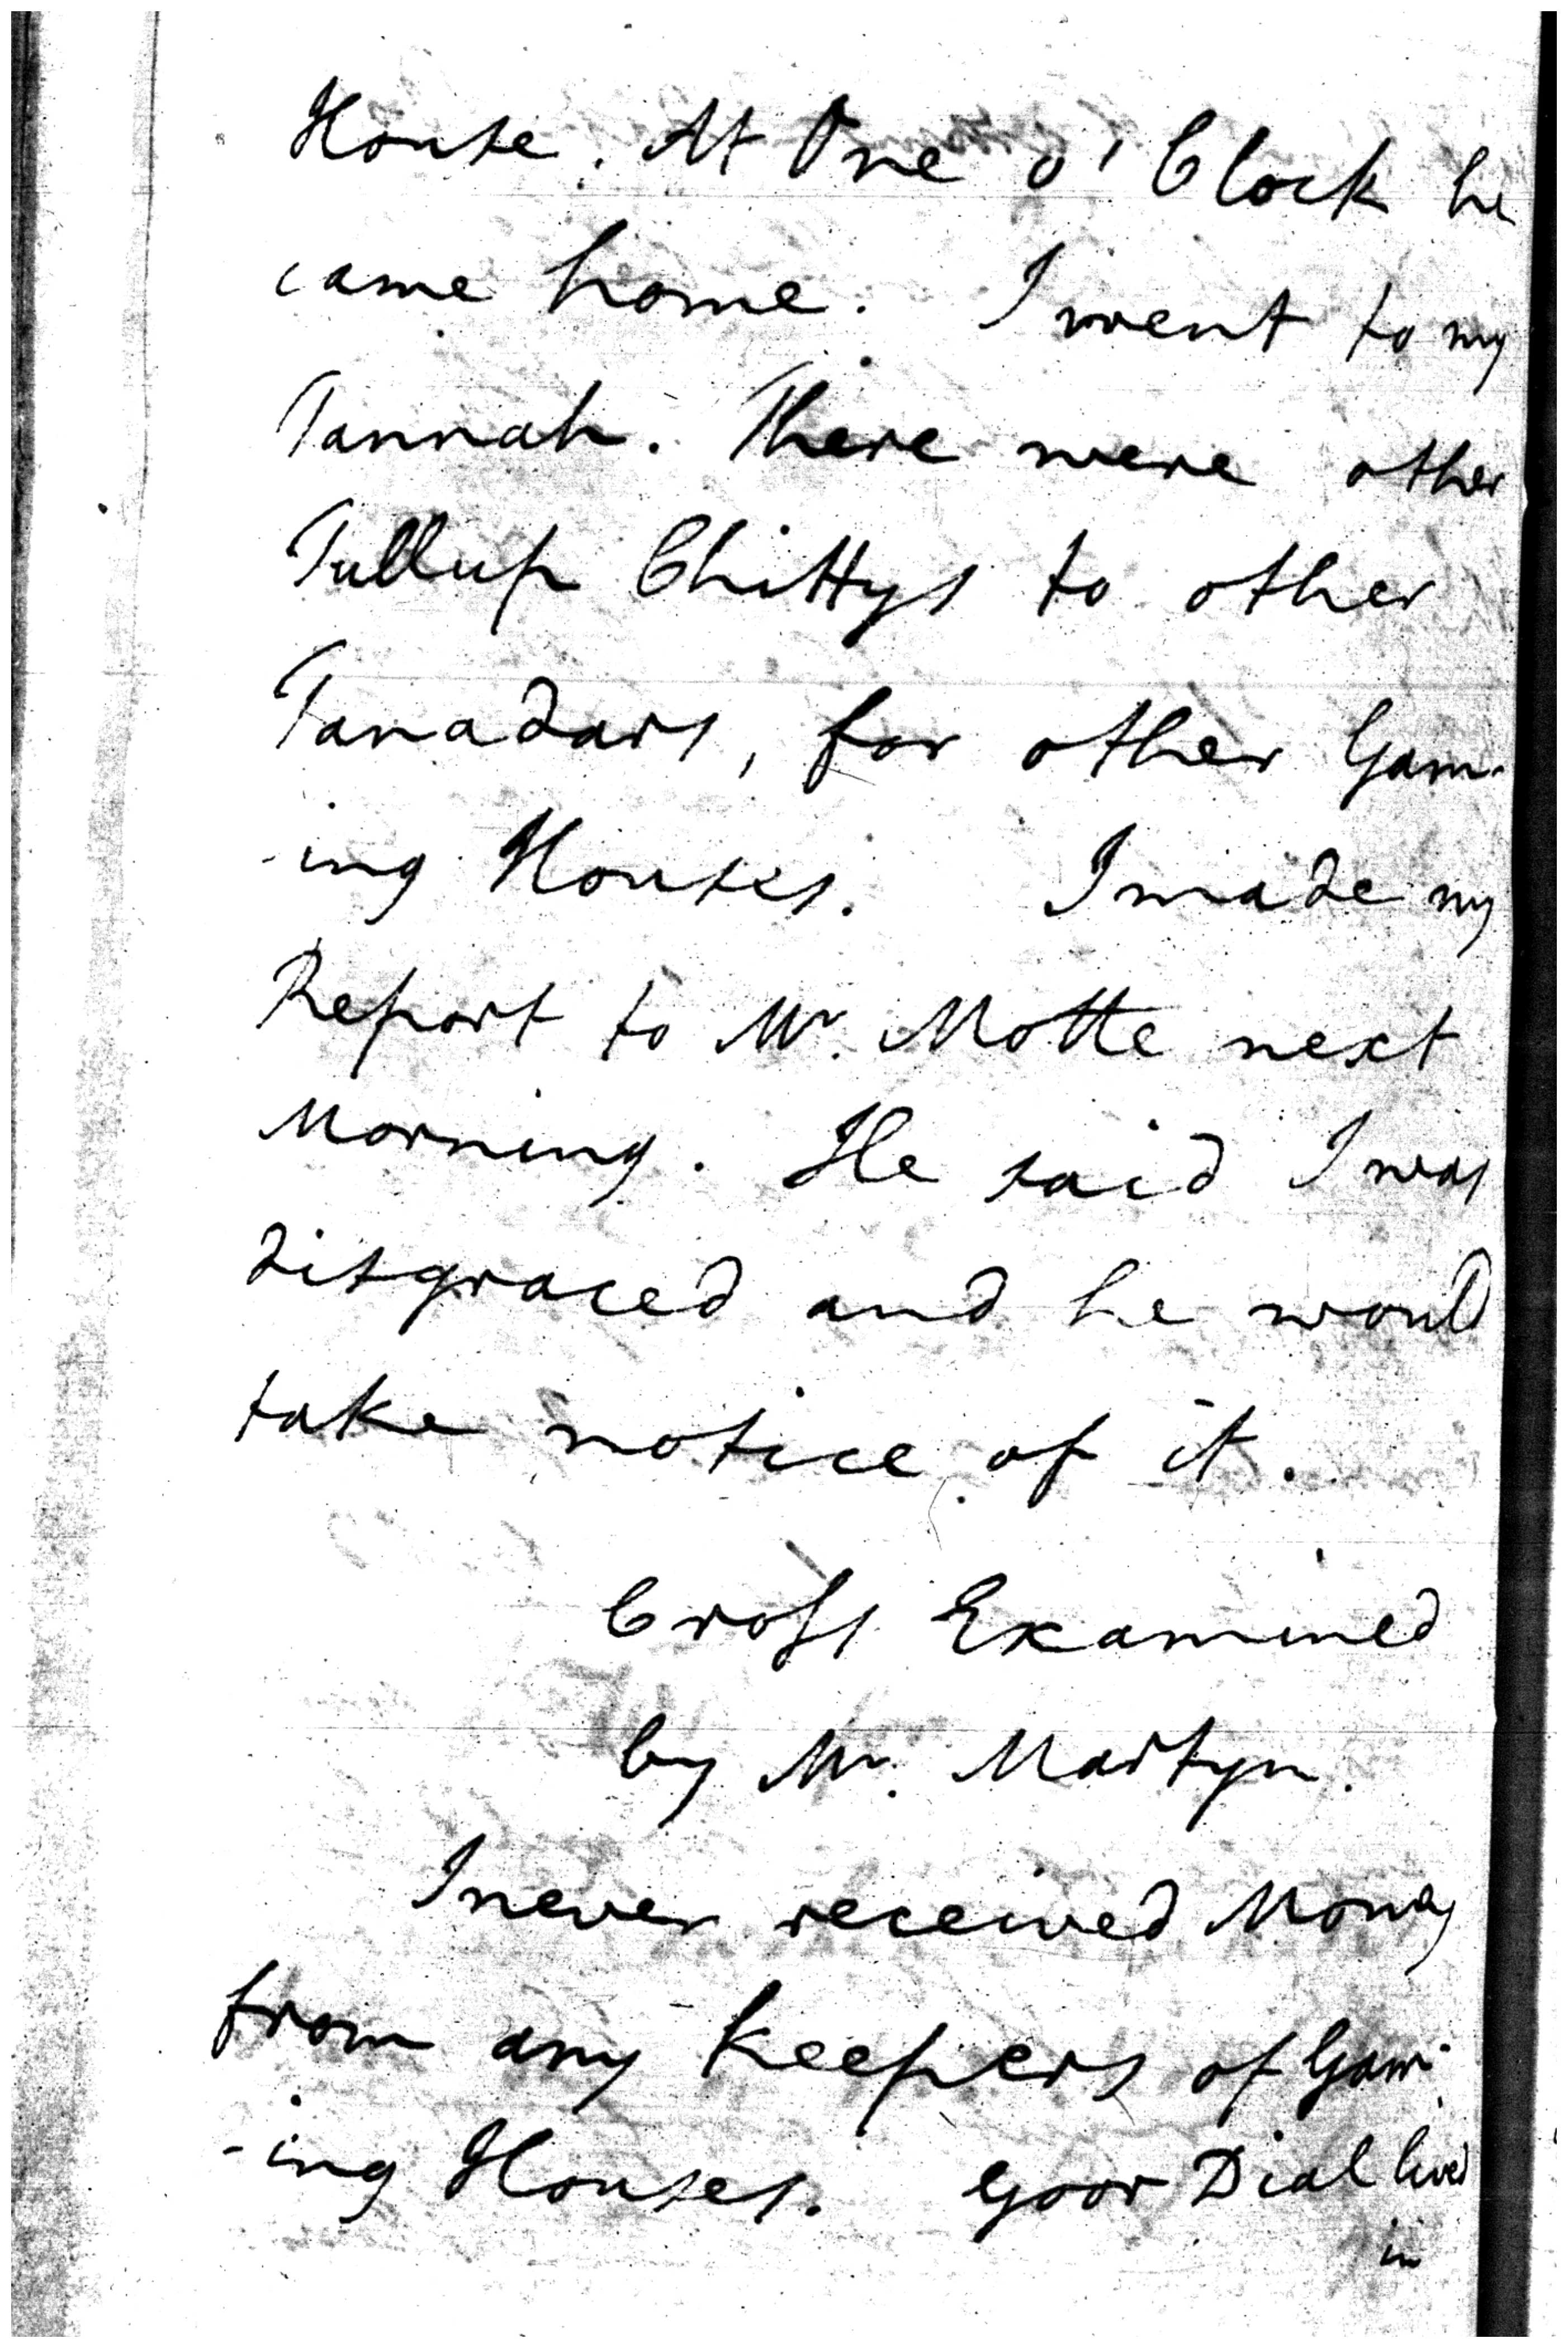 House. At One o' Clock he
came home. I went to my
Tannah. There were other
Tullup Chittys to other
Tanadars, for other Gam-
-ing Houses. I made my
Report to Mr. Motte next
Morning. He said I was
disgraced and he would
take notice of it.
Cross Examined
by Mr. Martyn.
I never received Money
from any Keepers of Gam-
-ing Houses. Goor Dial lived
in